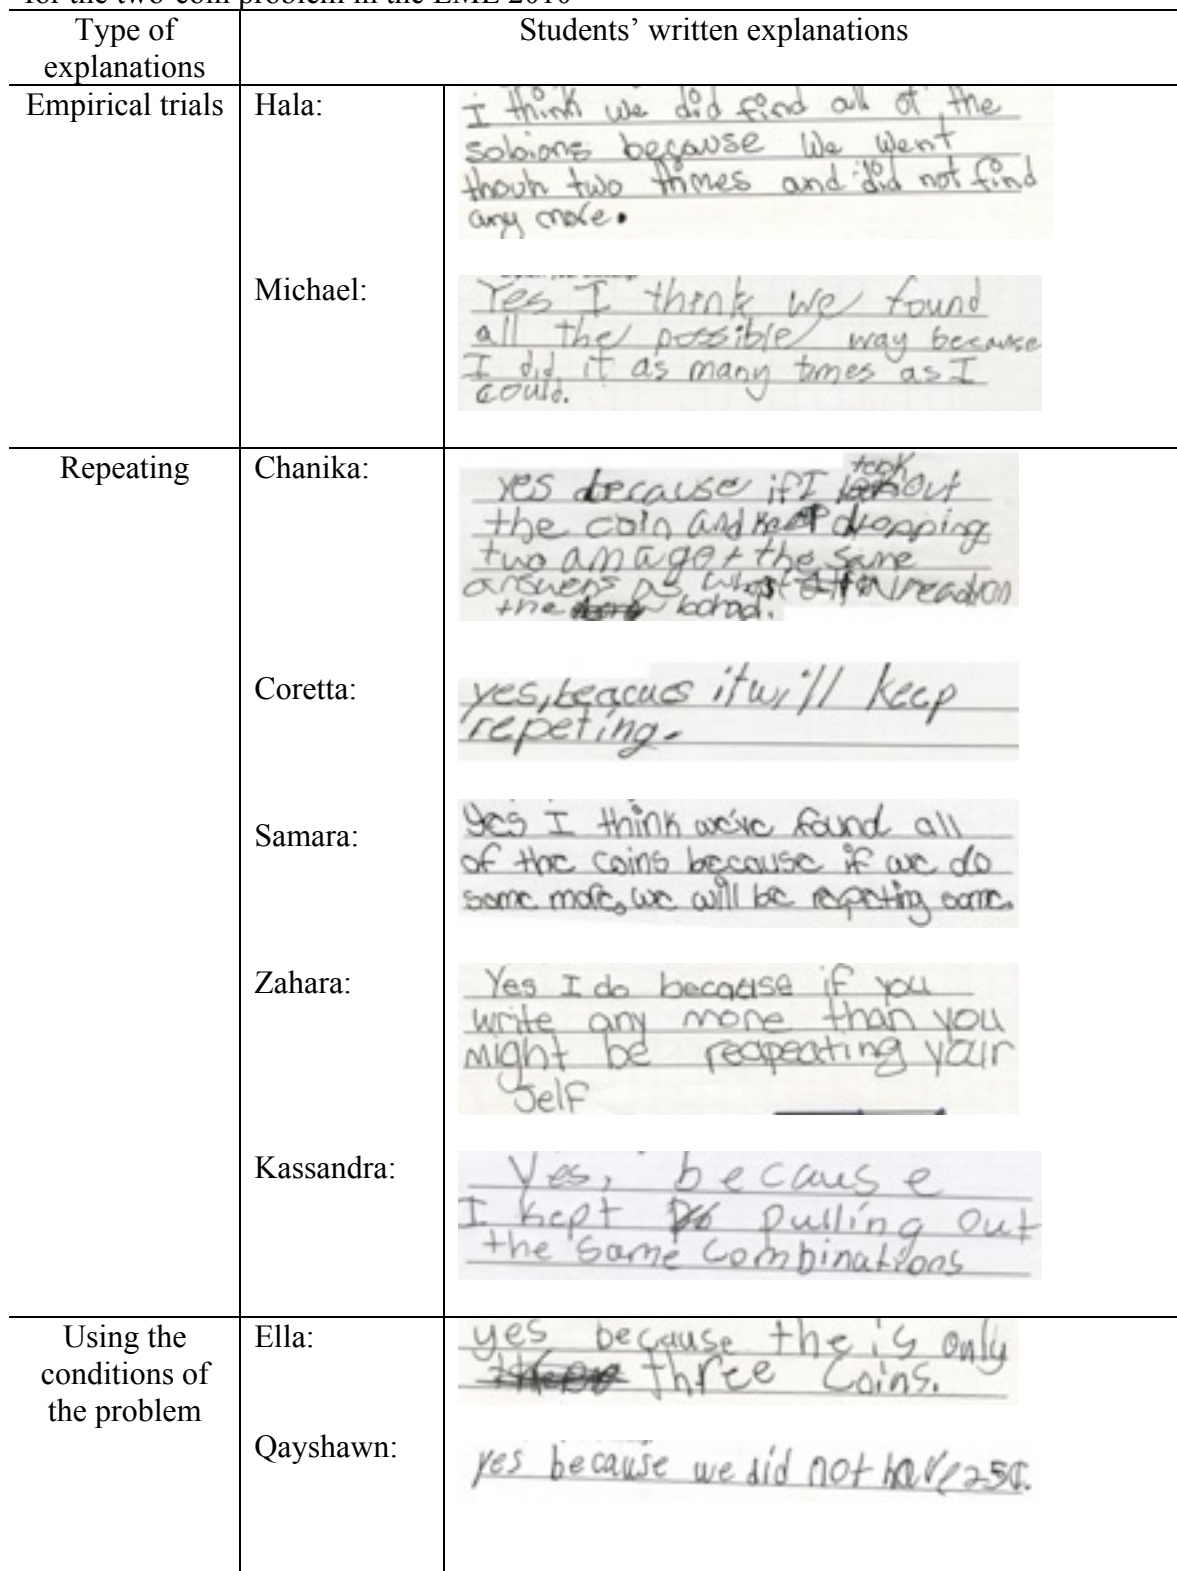 for the two-coin problem in the EME 2010
Type of explanations
Students’ written explanations
Empirical trials
Hala:
I think we did find all of the
sobions because we went
thouh two thimes and did not find
any more.
Michael:
Yes I think we found
all the possible way because
I did it as many times as I
could.
Repeating
Chanika:
yes because if I took out
the coin and keep dropping
two am a got the same
answers as what already on
the bohad.
Coretta:
yes, beacues it will keep
repeting.
Samara:
Yes I think we've found all
of the coins because if we do
some more, we will be repeting some.
Zahara:
Yes I do because if you
write any more than you
might be reapeating your
self
Kassandra:
Yes, because
I kept pulling out
the same combinations
Using the
conditions of
the problem
Ella:
yes because the is only
three coins.
Qayshawn:
yes because we did not have 25¢.